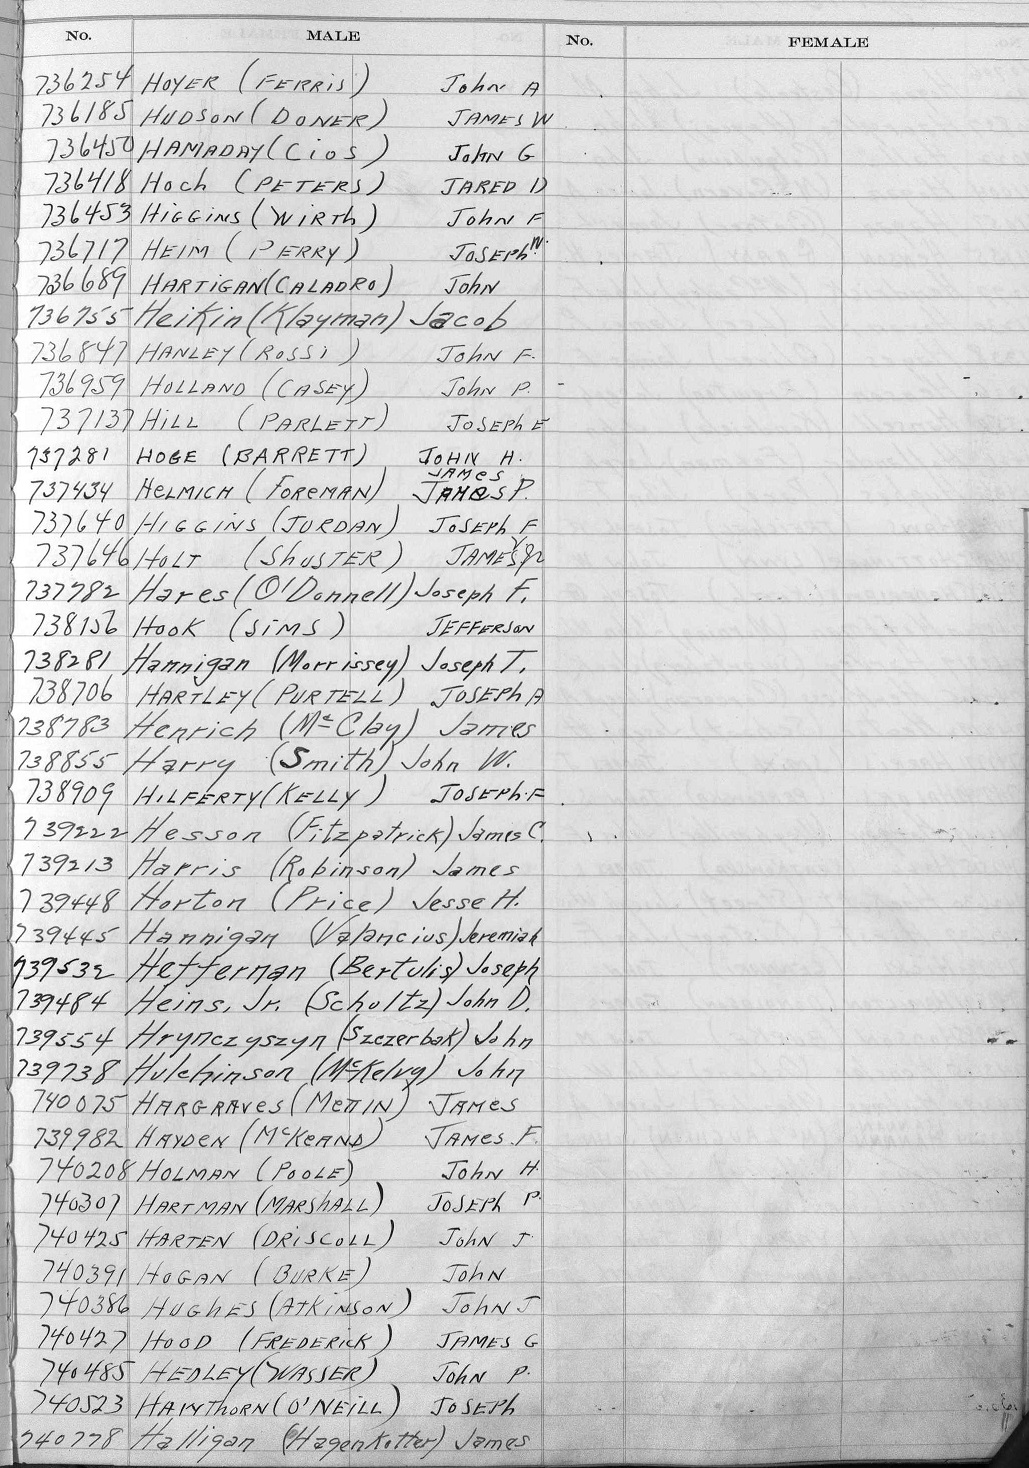 No. MALE No. FEMALE
736254 HOYER (FERRIS) JOHN A
736185 HUDSON (DONER) JAMES W
736450 HAMADAY (CIOS) JOHN G
736418 HOCH (PETERS) JARED D
736453 HIGGINS (WIRTH) JOHN F
736717 HEIM (PERRY) JOSEPH W.
736689 HARTIGAN (CALADRO) JOHN
736755 Heikin (Klayman) Jacob
736847 HANLEY (ROSSI) JOHN F.
736959 HOLLAND (CASEY) JOHN P.
737137 HILL (PARLETT) JOSEPH E
737281 HOGE (BARRETT) JOHN H.
JAMES
737434 HELMICH (FOREMAN) JAMES P.
737640 HIGGINS (JURDAN) JOSEPH F
737646 HOLT (SHUSTER) JAMES Y Jr
737782 Hares (O'Donnell) Joseph F.
738156 HOOK (SIMS) JEFFERSON
738281 Hannigan (Morrissey) Joseph T.
738706 HARTLEY (PURTELL) JOSEPH A
738783 Henrich (McClay) James
738855 Harry (Smith) John W.
738909 HILFERTY (KELLY) JOSEPH F
739222 Hesson (Fitzpatrick) James C.
739213 Harris (Robinson) James
739448 Horton (Price) Jesse H.
739445 Hannigan (Valancius) Jeremiah
739532 Heffernan (Bertulis) Joseph
739484 Heins, Jr. (Schultz) John D.
739554 Hrynczyszyn (Szczerbak) John
739738 Hutchinson (McKelvy) John
740075 HARGRAVES (METTIN) JAMES
739982 HAYDEN (McKEAND) JAMES F.
740208 HOLMAN (POOLE) JOHN H.
740307 HARTMAN (MARSHALL) JOSEPH P.
740425 HARTEN (DRISCOLL) JOHN J
740391 HOGAN (BURKE) JOHN
740386 HUGHES (ATKINSON) JOHN J
740427 HOOD (FREDERICK) JAMES G
740485 HEDLEY (WASSER) JOHN P.
740523 HAWTHORN (O'NEILL) JOSEPH
740778 Halligan (Hagenkotter) James